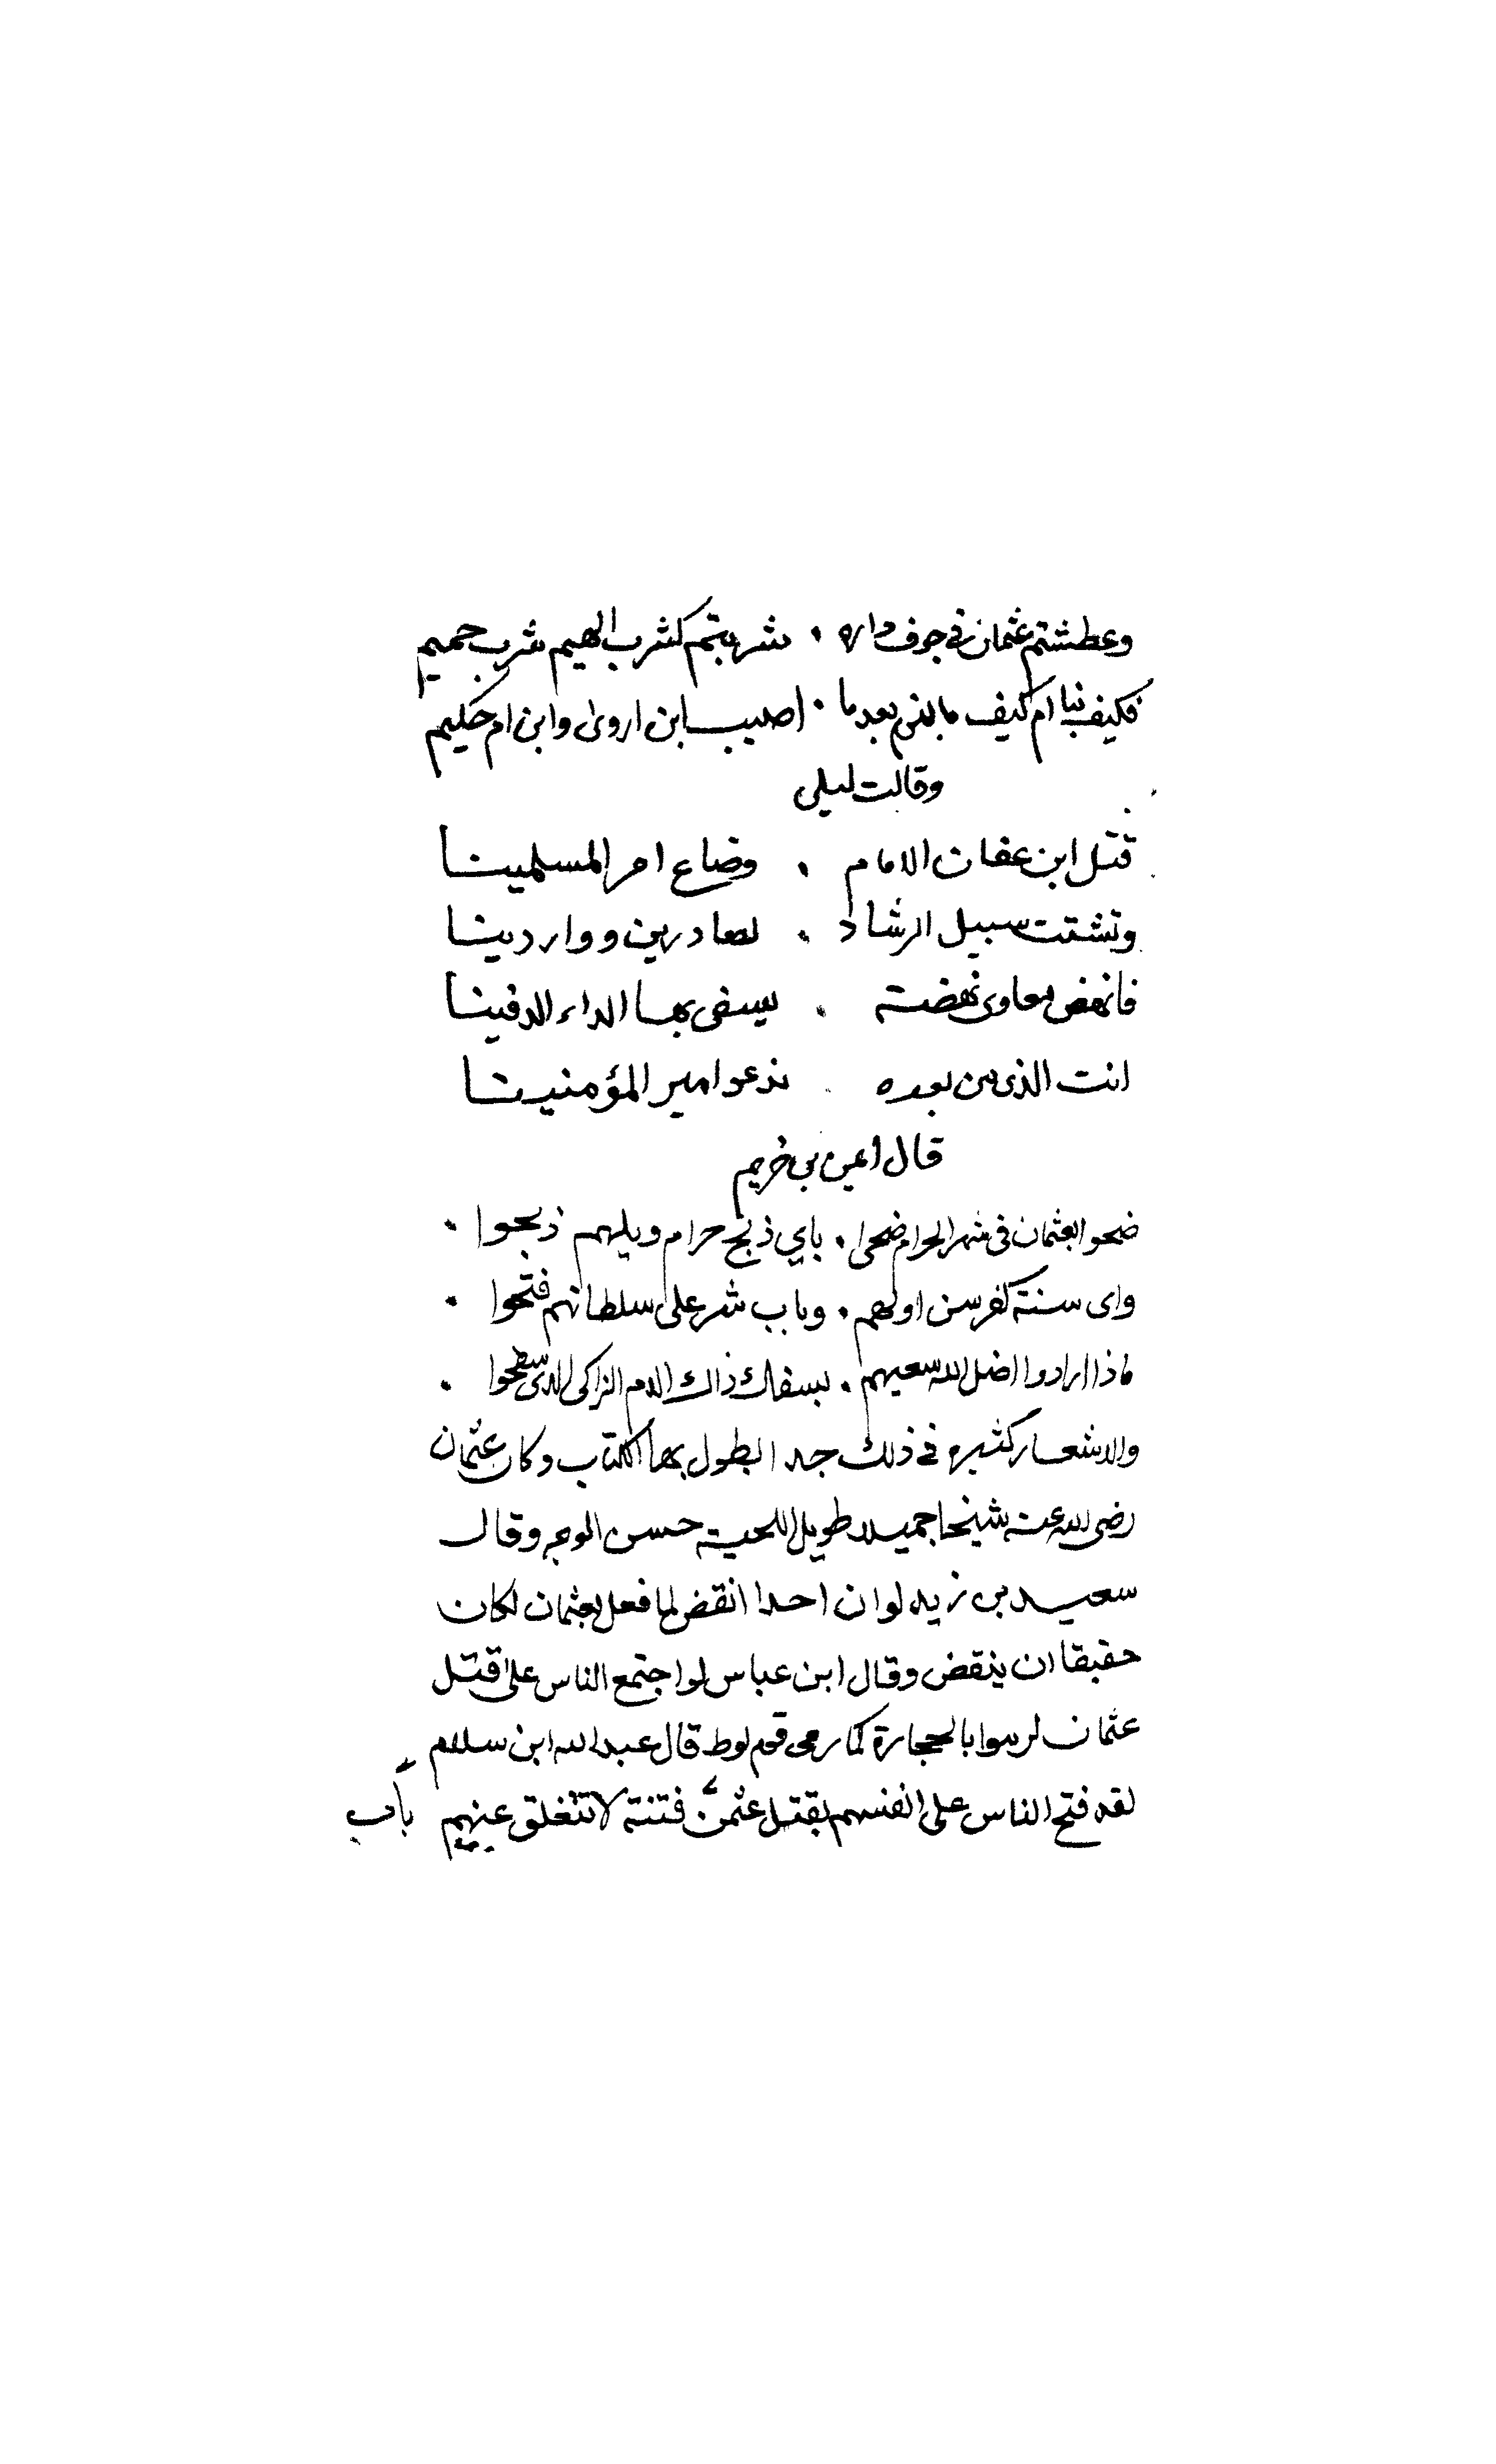 وعطشتم عثمان في جوف داره . شربتم كشرب الهيم شرب حميم
فكيف بنا ام كيف بالنوم بعدما . اصيب ابن اروى وابن ام حكيم
وقالت ليلى
قتل ابن عفان الامام . وضاع امر المسلمينا
وتشتت سبيل الرشاد . لصادرين وواردينا
فانهض معاوى نهضة . يسفى بها الداء الدفينا
انت الذى من بعده . ندعو امير المؤمنينا
قال ايمن بن خريم
ضحوا بعثمان فى شهر الحرام ضحى . باي ذبح حرام ويلهم ذبحوا .
واى سنة كفر سن اولهم . وباب شر على سلطانهم فتحوا .
ماذا ارادوا اضل الله سعيهم . بسفك ذاك الدم الزاكى الذى سفحوا .
والاشعار كثيره في ذلك جدا يطول بها الكتاب وكان عثمان
رضى الله عنه شيخا جميلا طويل اللحية حسن الوجه وقال
سعيد بن زيد لو ان احدا انقض لما فعل بعثمان لكان
حقيقا ان ينقض وقال ابن عباس لو اجتمع الناس على قتل
عثمان لرموا بالحجارة كما رمى قوم لوط قال عبد الله ابن سلام
لقد فتح الناس على انفسهم بقتل عثمن فتنة لا تنغلق عنهم باب